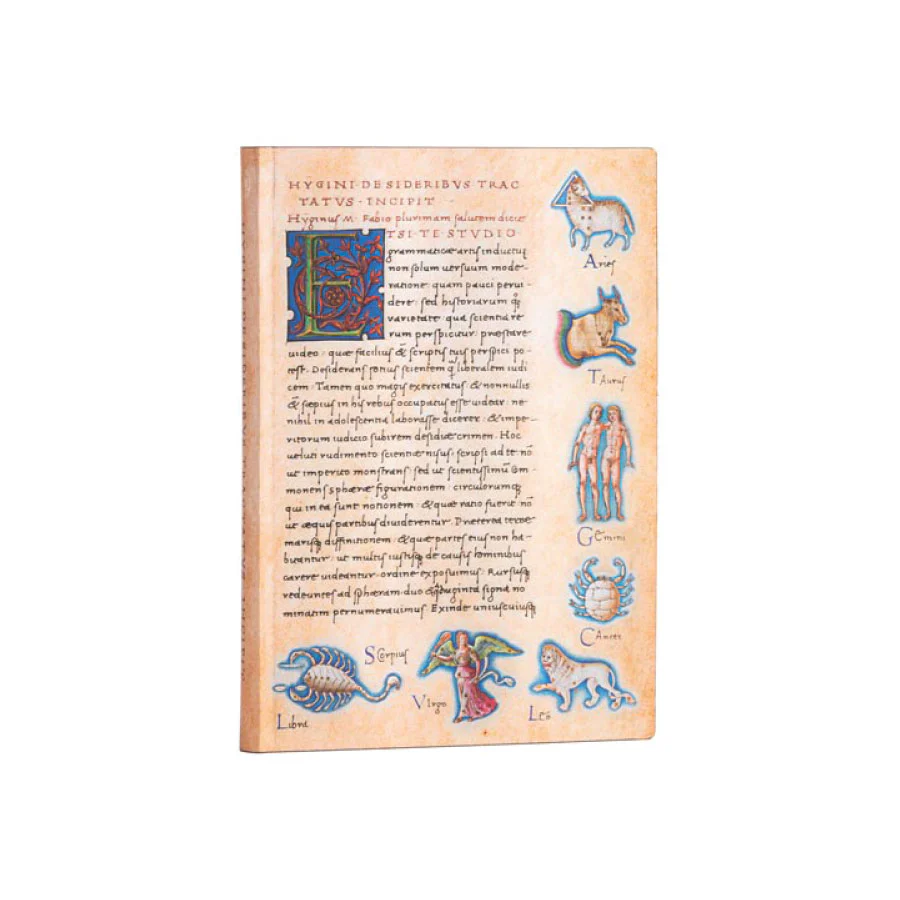 HYGINI·DE SIDERIBVS·TRAC
TATVS·INCIPIT
Hyginus M. Fabio plurimam salutem dicit
ETSI·TE·STVDIO
grammaticæ artis inductū
non solum uersuum mode-
ratione: quam pauci perui-
dere: sed historiarum q̊
uarietate: qua scientia re-
rum perspicitur: præstare
uideo: quæ facilius & scriptis tuis perspici po-
test. Desiderans potius scientem q̄ liberalem iudi
cem. Tamen quo magis exercitatus & nonnullis
& sæpius in his rebus occupatus esse uidear: ne
nihil in adolescentia laborasse dicerer: & impe-
ritorum iudicio subirem desidiæ crimen. Hoc
ueluti rudimento scientiæ nisus: scripsi ad te: nō
ut imperito monstrans: sed ut scientissimū com-
monens sphæræ figurationem: circulorumq;
qui in ea sunt notionem: & quæ ratio fuerit: nō
ut æquis partibus diuiderentur. Præterea terræ
marisq; diffinitionem: & quæ partes eius non ha-
bitantur: ut multis iustisq; de causis hominibus
carere uideantur: ordine exposuimus. Rursusq;
redeuntes ad sphæram: duo & quadraginta signa no
minatim pernumerauimus. Exinde uniuscuiusq;
Aries
Taurus
Gemini
Cancer
Leo
Virgo
Scorpius
Libra